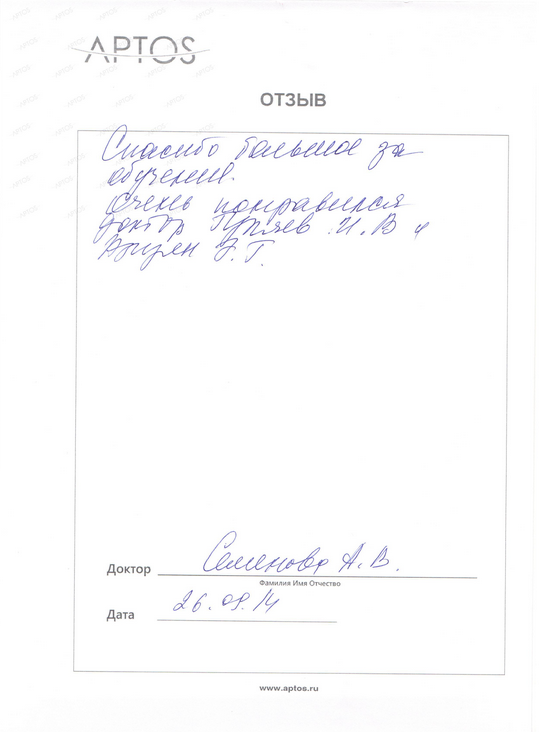 APTOS
ОТЗЫВ
Спасибо большое за
обучение.
Очень понравился
доктор И.В и
Г.
Доктор Семенова А.В.
Фамилия Имя Отчество
Дата 26.09.14
www.aptos.ru